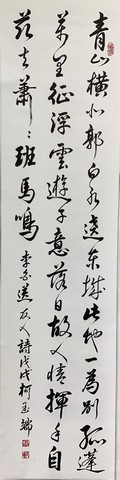 青山橫北郭白水遶東城此地一為別孤蓬
萬里征浮雲遊子意落日故人情揮手自
茲去蕭〻班馬鳴
李白送友人詩戊戌柯玉